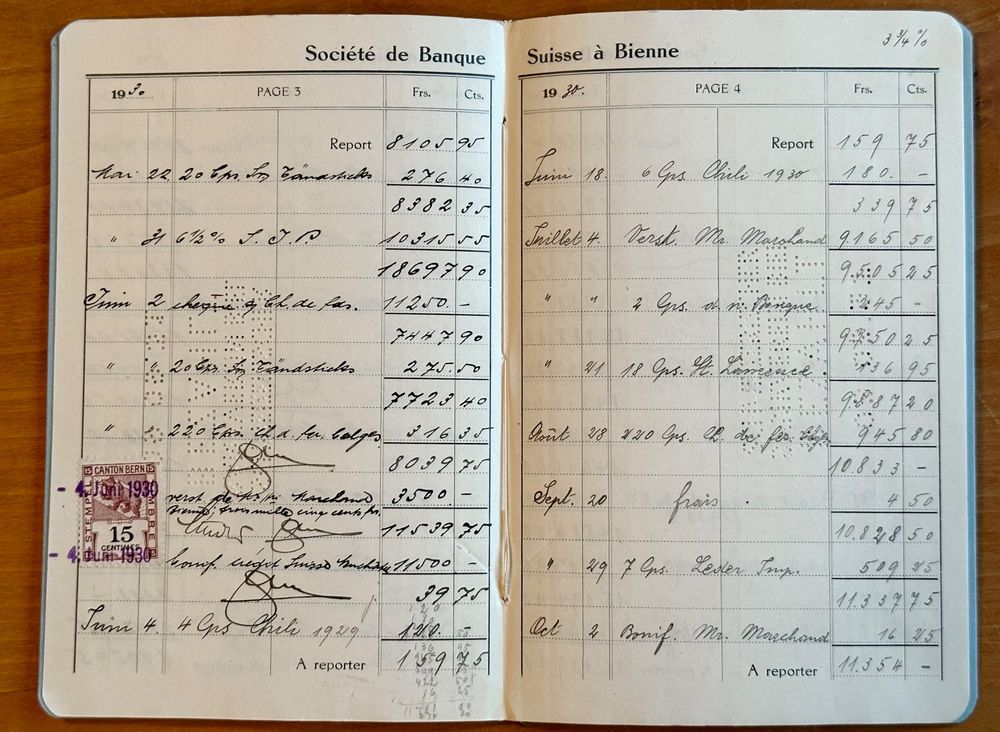 Société de Banque
1930. PAGE 3 Frs. Cts.
Report 8105 95
Mai 22 20 Cps. Tändsticks 276 40
8382 35
" 31 6½% S. I. P. 10315 55
18697 90
Juin 2 chèque Ch. de fas. 11250. –
7447 90
" " 20 Cps. Tändsticks 275.50
7723 40
" " 220 Cps. Ch. d. fer belges 316 35
8039 75
verst. de Marchand 3500 –
trois mille cinq cents frs.
11539 75
Bonif. Crédit Suisse 11500 –
39 75
Juin 4. 4 Cps Chili 1929 120. –
A reporter 159 75
CANTON BERN
15 15
STEMPEL TIMBRE
15
CENTIMES
- 4. Juni 1930
- 4. Juni 1930
3 3/4 %
Suisse à Bienne
1930. PAGE 4 Frs. Cts.
Report 159 75
Juin 18. 6 Cps. Chili 1930 180. –
339 75
Juillet 4. Verst. Mr. Marchand 9.165 50
9505 25
" " 2 Cps. d. n. Banque 245 –
9750 25
" 21 18 Cps. St. Lawrence 136 95
9887 20
Août 28 220 Cps. Ch. de fer belges 945 80
10.833 –
Sept. 20 frais 4 50
10.828 50
" 29 7 Cps. Leder Imp. 509 25
11.337 75
Oct 2 Bonif. Mr. Marchand 16 25
A reporter 11.354 –